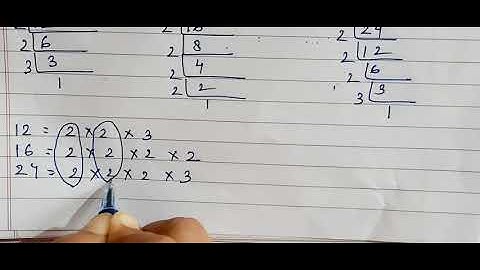 2 6
2 8
2 4
2 2
1
24
2 12
2 6
3 3
1
3 3
1
12 = 2 × 2 × 3
16 = 2 × 2 × 2 × 2
24 = 2 × 2 × 2 × 3